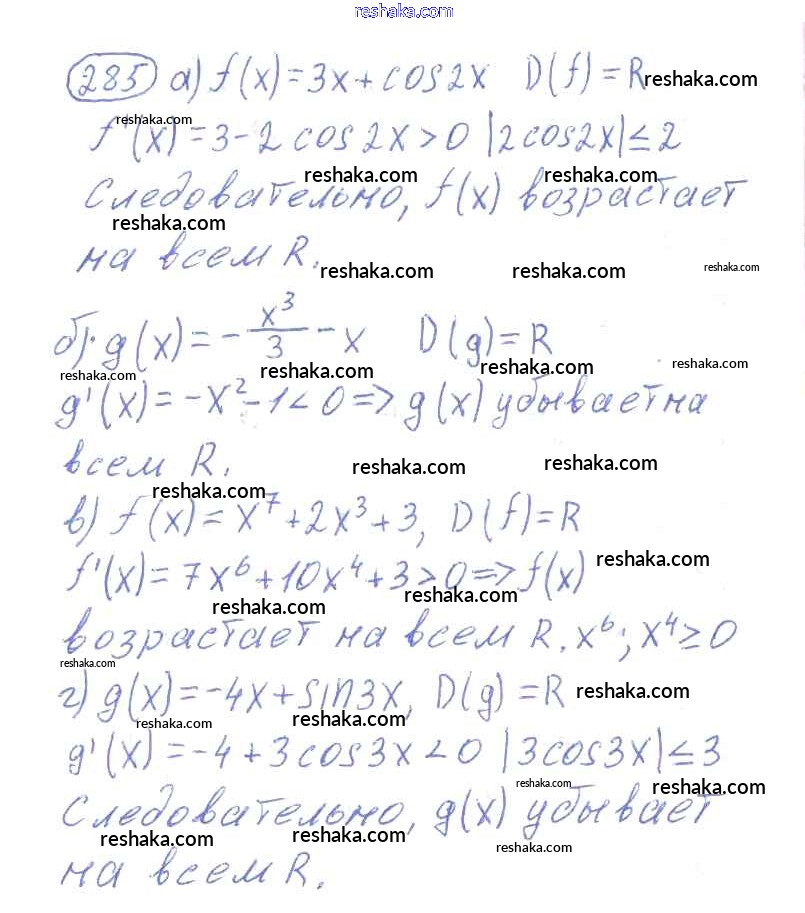 reshaka.com
285 а) f(x) = 3x + cos2x D(f) = R reshaka.com
reshaka.com
f'(x) = 3 - 2 cos2x > 0 |2cos2x| ≤ 2
reshaka.com reshaka.com
Следовательно, f(x) возрастает
reshaka.com
на всем R.
reshaka.com reshaka.com reshaka.com
б) g(x) = -x³/3 - x D(g) = R
reshaka.com reshaka.com reshaka.com reshaka.com
g'(x) = -x² - 1 < 0 => g(x) убывает на
всем R.
reshaka.com reshaka.com
reshaka.com
в) f(x) = x⁷ + 2x³ + 3, D(f) = R
reshaka.com
f'(x) = 7x⁶ + 10x⁴ + 3 > 0 => f(x)
reshaka.com reshaka.com
возрастает на всем R. x⁶; x⁴ ≥ 0
reshaka.com
г) g(x) = -4x + sin3x, D(g) = R reshaka.com
reshaka.com reshaka.com
g'(x) = -4 + 3cos3x < 0 |3cos3x| ≤ 3
reshaka.com reshaka.com
Следовательно, g(x) убывает
reshaka.com reshaka.com reshaka.com
на всем R.